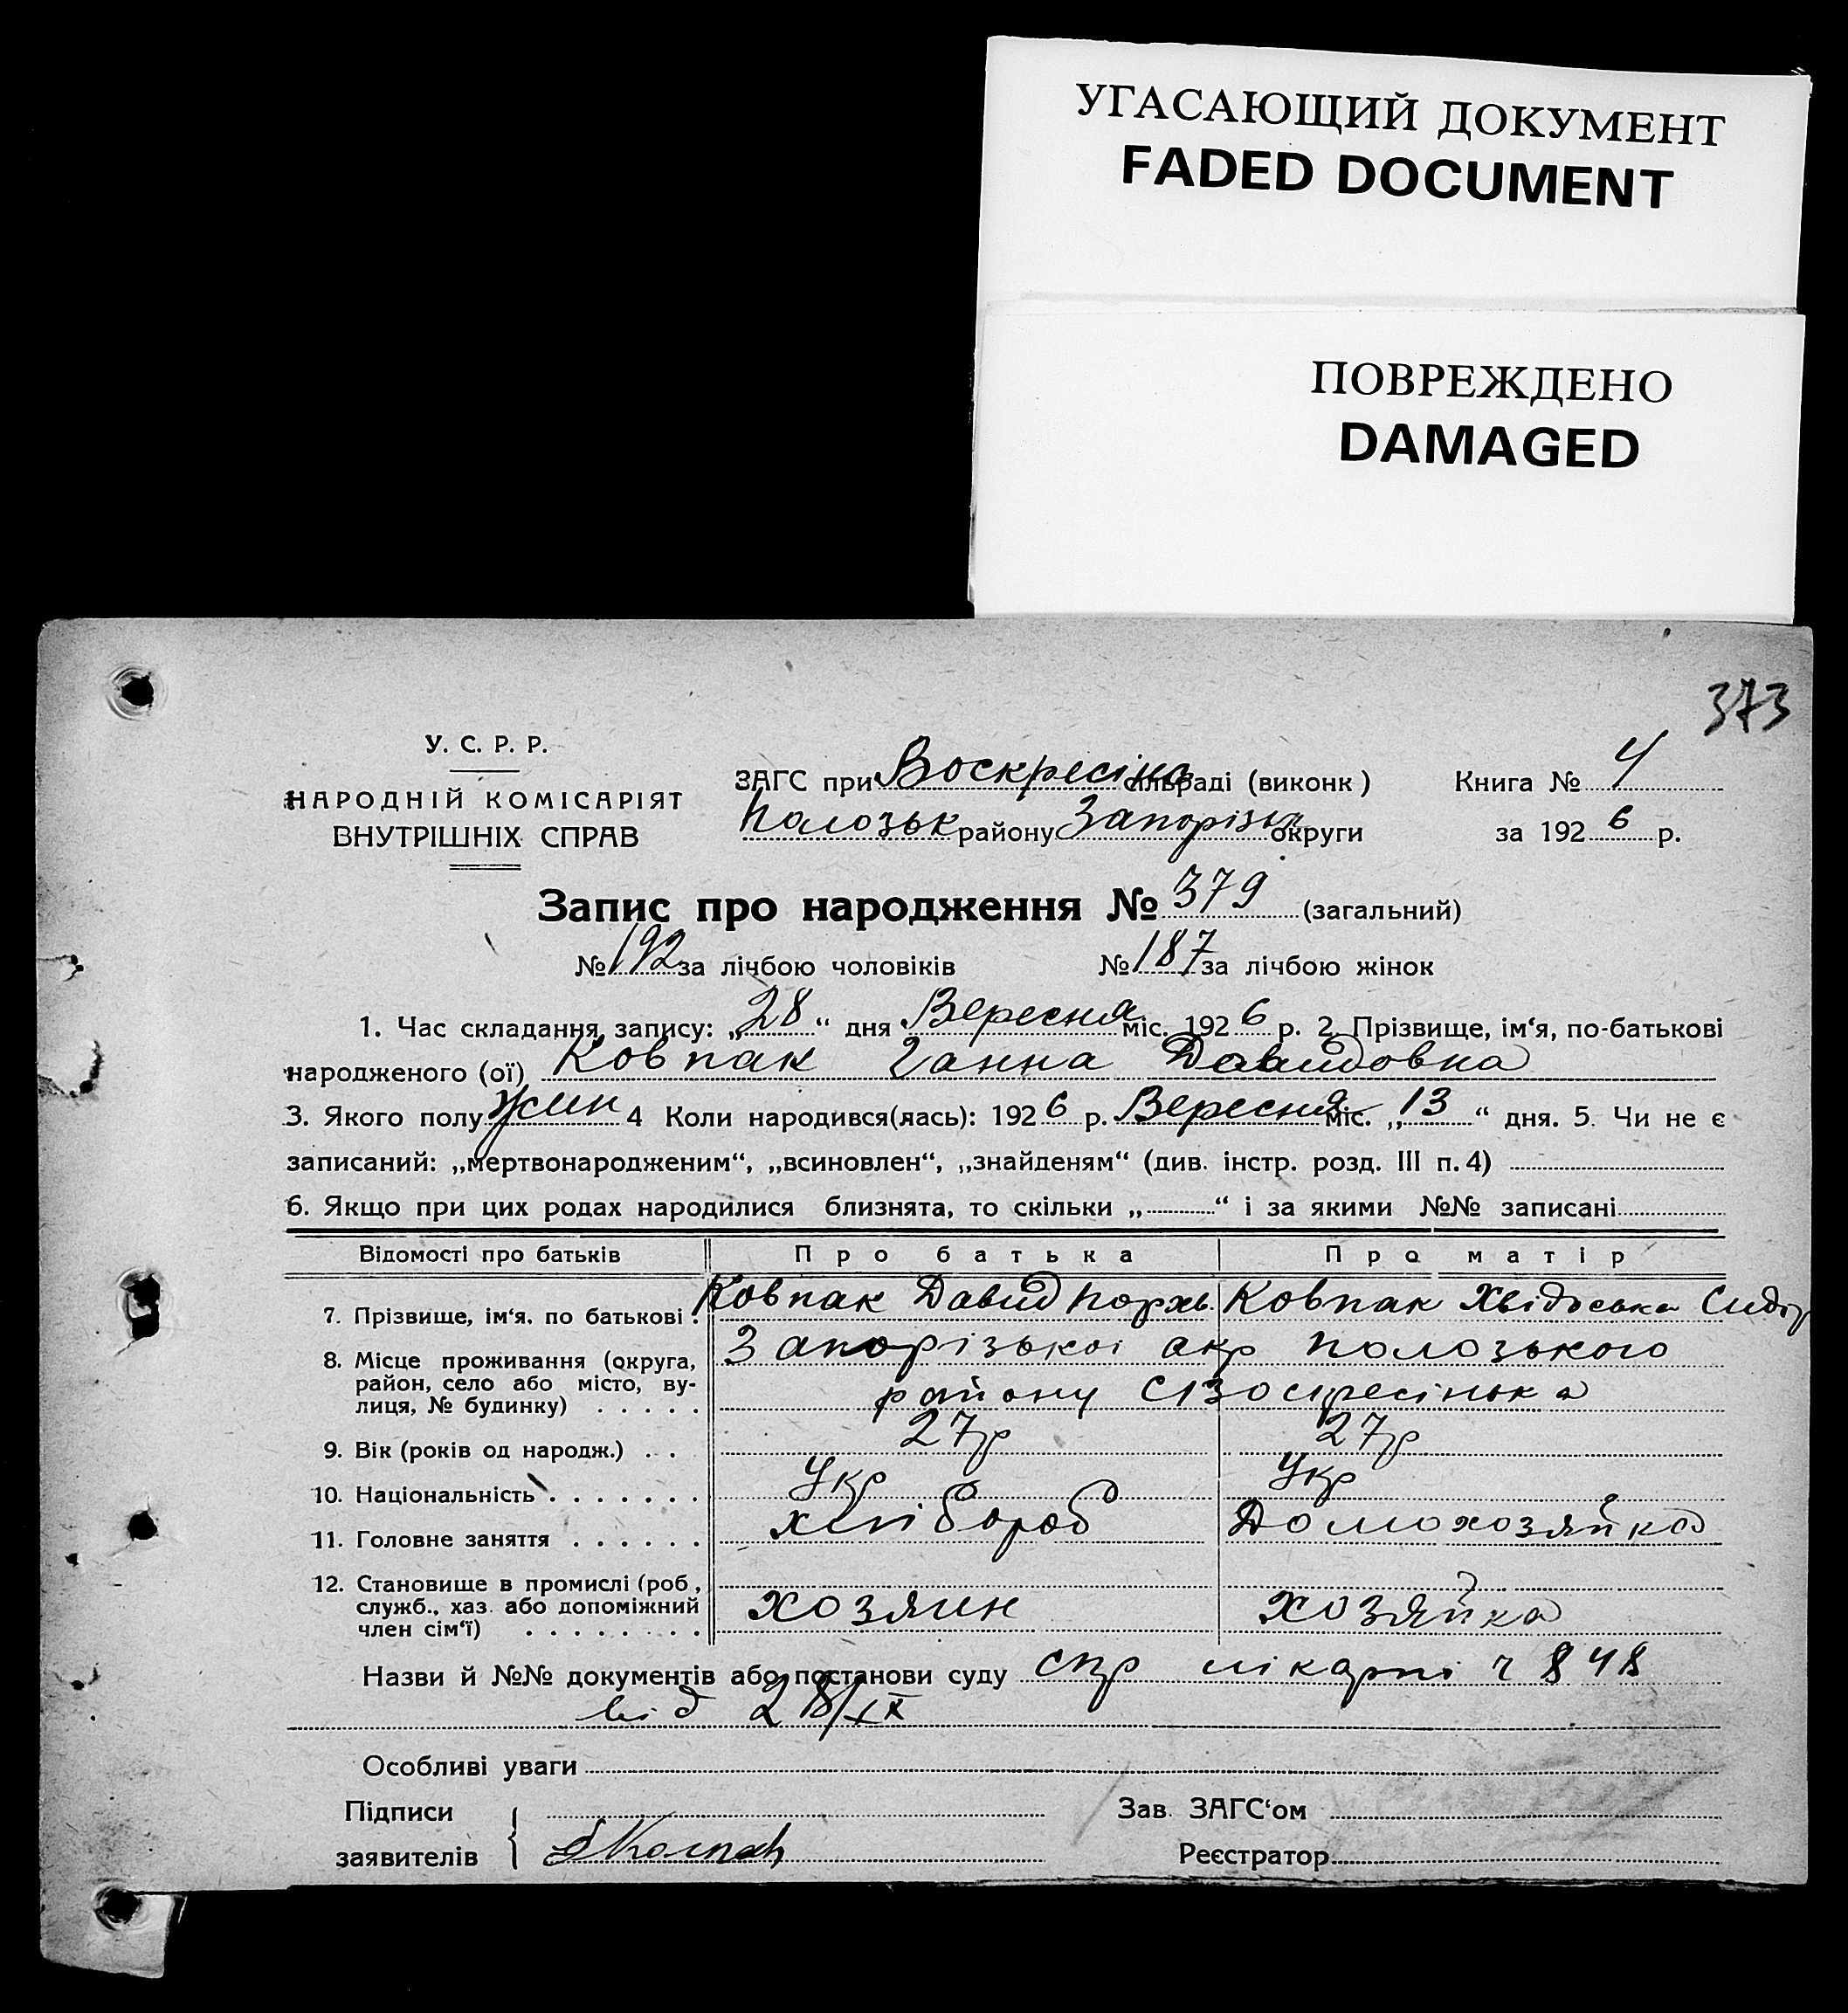 УГАСАЮЩИЙ ДОКУМЕНТ
FADED DOCUMENT
ПОВРЕЖДЕНО
DAMAGED
373
У. С. Р. Р.
НАРОДНІЙ КОМІСАРІЯТ
ВНУТРІШНІХ СПРАВ
ЗАГС при Воскресінс сільраді (виконк) Книга № 4
Полозьк району Запорізьк округи за 1926 р.
Запис про народження № 379 (загальний)
№ 192 за лічбою чоловіків № 187 за лічбою жінок
1. Час складання запису: „28“ дня Вересня міс. 1926 р. 2. Прізвище, ім‘я, по-батькові
народженого (ої) Ковпак Ганна Давидовна
3. Якого полу жин 4 Коли народився(лась): 1926 р. Вересня міс. „13“ дня. 5. Чи не є
записаний: „мертвонародженим“, „всиновлен“, „знайденям“ (див. інстр. розд. III п. 4)
6. Якщо при цих родах народилися близнята, то скільки „ “ і за якими №№ записані
Відомості про батьків Про батька Про матір
7. Прізвище, ім‘я, по батькові Ковпак Давид Порхв. Ковпак Хвідоська Сидір
8. Місце проживання (округа, район, село або місто, вулиця, № будинку) Запорізькоі окр Полозького
району с Воскресінька
9. Вік (років од народж.) 27р 27р
10. Національність Укр Укр
11. Головне заняття хлібороб Домохозяйка
12. Становище в промислі (роб., служб., хаз. або допоміжний член сім‘ї) хозяин хозяйка
Назви й №№ документів або постанови суду спр лікарні ч 848
від 28/IX
Особливі уваги
Підписи
заявителів
Зав. ЗАГС‘ом
Реєстратор